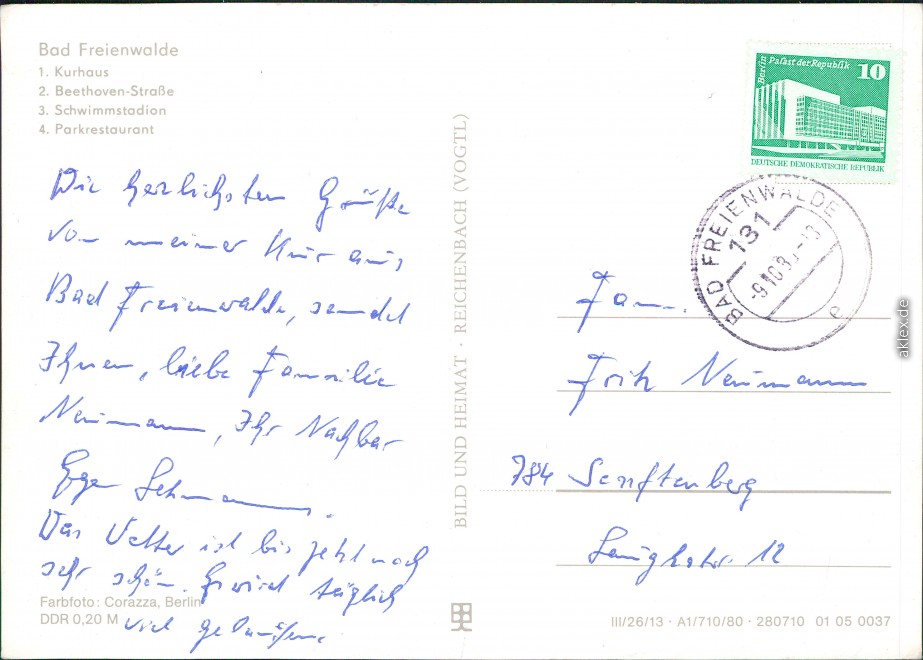 Bad Freienwalde
1. Kurhaus
2. Beethoven-Straße
3. Schwimmstadion
4. Parkrestaurant
Die herzlichsten Grüße
von meiner Kur aus
Bad Freienwalde, sendet
Ihnen, liebe Familie
Neumann, Ihr Nachbar
Lehmann.
Das Wetter ist bis jetzt noch
sehr schön. Es wird täglich
viel gelaufen.
Farbfoto: Corazza, Berlin
DDR 0,20 M
BILD UND HEIMAT · REICHENBACH (VOGTL)
Berlin Palast der Republik 10
DEUTSCHE DEMOKRATISCHE REPUBLIK
BAD FREIENWALDE
131
e
Fam.
Fritz Neumann
784 Senftenberg
12
III/26/13 · A1/710/80 · 280710 01 05 0037
aklex.de